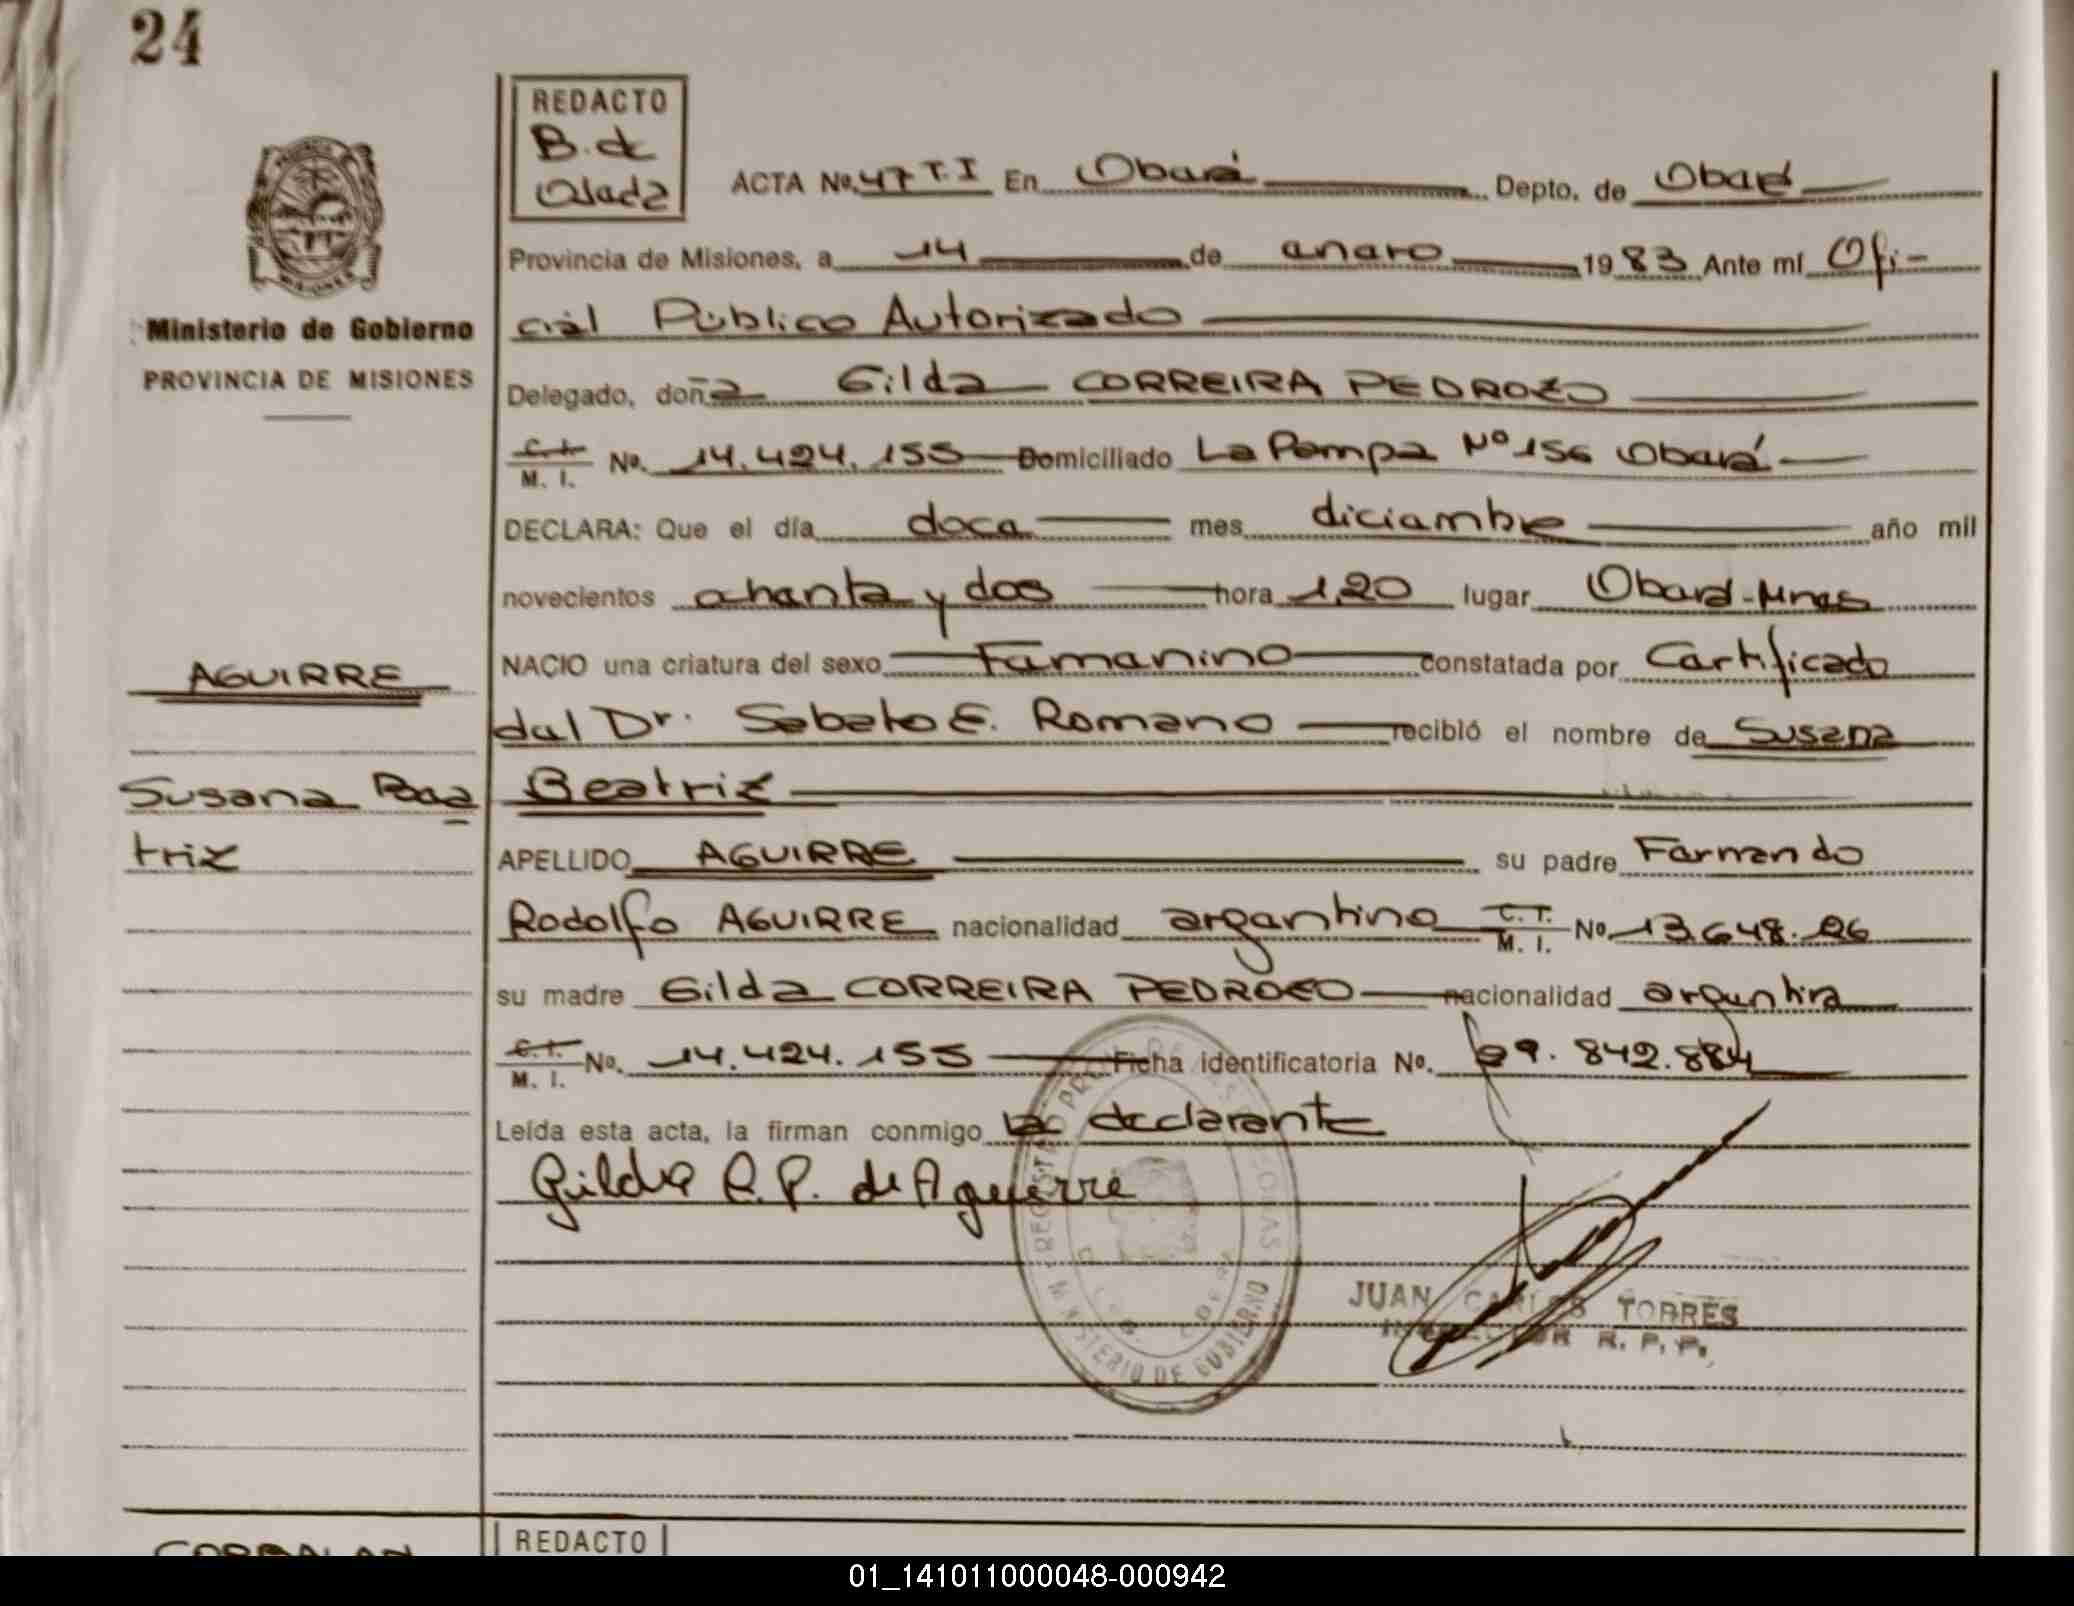 24
REDACTO
B. de
Olada
ACTA No. 47 T.I En Oberá Depto. de Oberá
Provincia de Misiones, a 14 de enero 1983 Ante mí Ofi-
cial Público Autorizado
Ministerio de Gobierno
PROVINCIA DE MISIONES
Delegado, doña Gilda CORREIRA PEDROZO
C.I. M. I. No. 14.424.155 Domiciliado La Pampa Nº 156 Oberá
DECLARA: Que el día doce mes diciembre año mil
novecientos ochenta y dos hora 1,20 lugar Oberá-Mnes
NACIO una criatura del sexo Femenino constatada por Certificado
del Dr. Sabato E. Romano recibió el nombre de Susana
Beatriz
AGUIRRE
Susana Bea
triz
APELLIDO AGUIRRE su padre Fernando
Rodolfo AGUIRRE nacionalidad argentino C.I. M. I. No. 13.648.
su madre Gilda CORREIRA PEDROZO nacionalidad argentina
C.I. M. I. No. 14.424.155 Ficha identificatoria No. 29.842.884
Leída esta acta, la firman conmigo la declarante
Gilda C. P. de Aguirre
MINISTERIO DE GOBIERNO
JUAN CARLOS TORRES
INSPECTOR R. P. P.
REDACTO
01_141011000048-000942